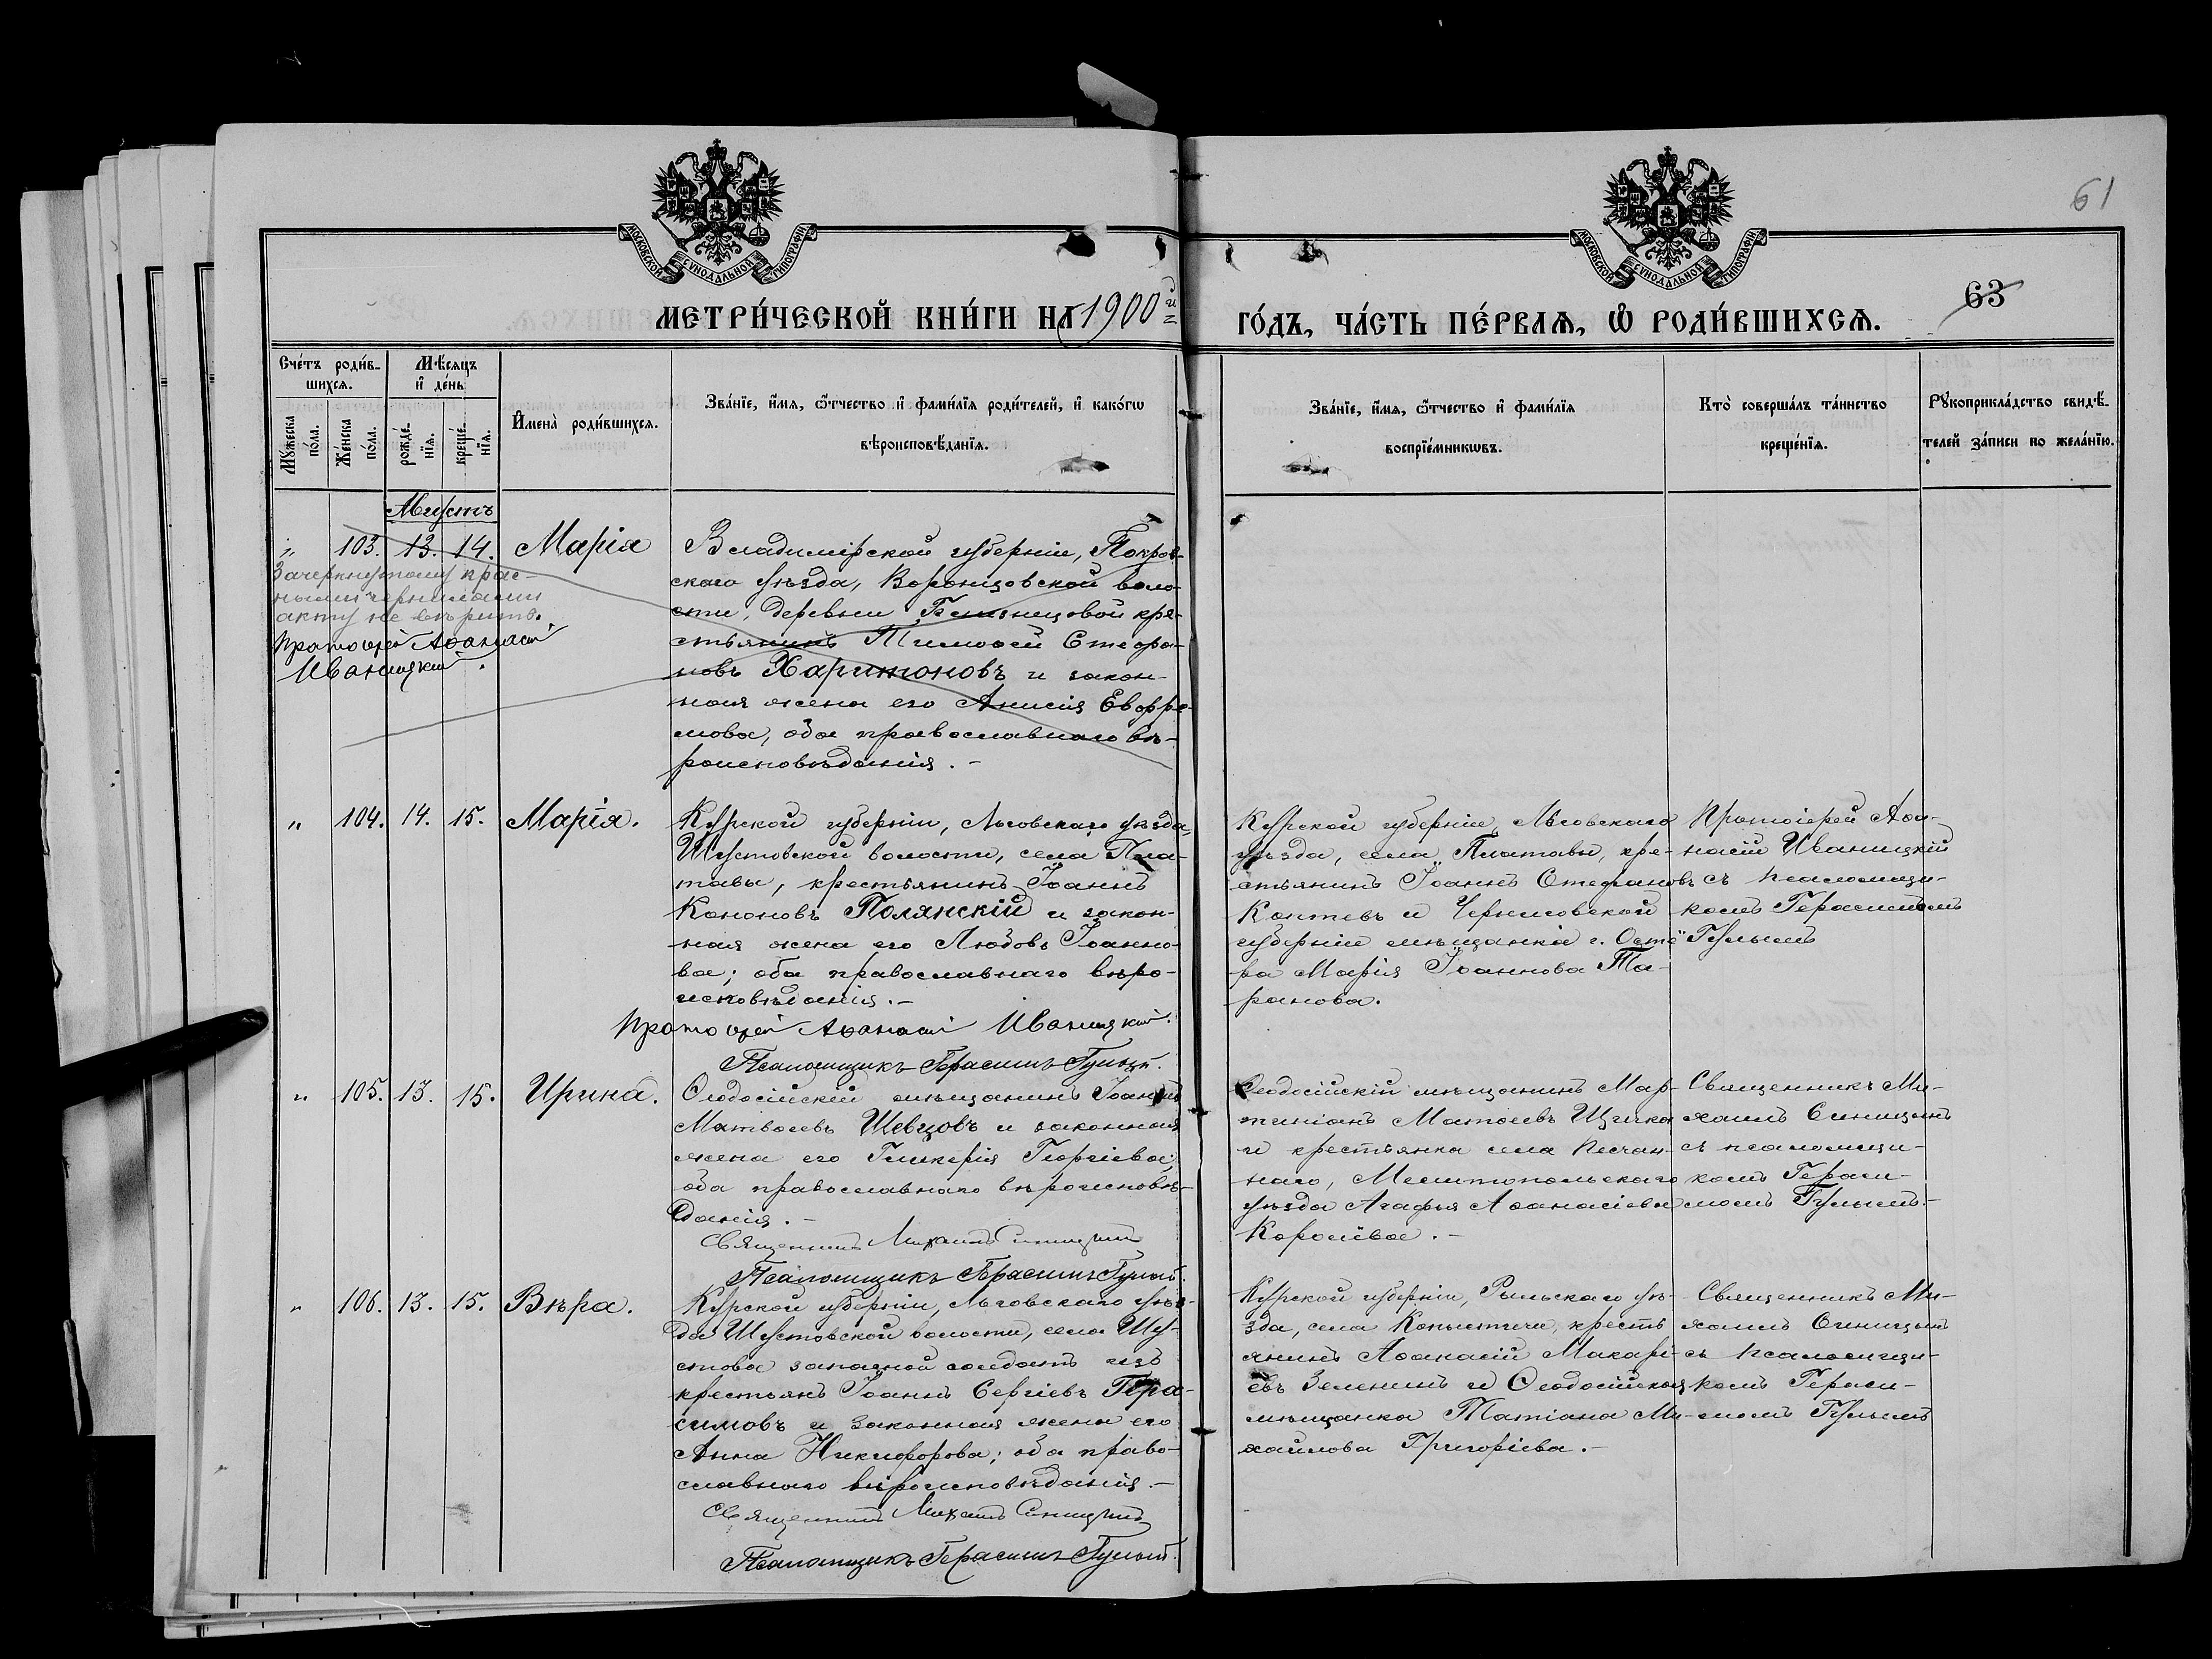 61
МОСКОВСКОЙ СѴНОДАЛЬНОЙ ТИПОГРАФІИ
МОСКОВСКОЙ СѴНОДАЛЬНОЙ ТИПОГРАФІИ
63
МЕТРИ́ЧЕСКОЙ КНИ́ГИ НА 1900й ГО́ДЪ, ЧА́СТЬ ПЕ́РВАѦ, Ѽ РОДИ́ВШИХСѦ.
Сче́тъ роди́в-
шихсѧ.
Мѣ́сѧцъ
и҆ де́нь
Мꙋ́жеска по́ла.
Же́нска по́ла.
рожде́-нїѧ.
креще́-нїѧ.
И҆мена̀ роди́вшихсѧ.
Зва́нїе, и҆́мѧ, ѻ҆́тчество и҆ фами́лїѧ роди́телей, и҆ како́гѡ
вѣроисповѣ́данїѧ.
Зва́нїе, и҆́мѧ, ѻ҆́тчество и҆ фами́лїѧ
воспрїе́мникѡвъ.
Кто̀ соверша́лъ та́инство
креще́нїѧ.
Рꙋкоприкла́дство свидѣ́-
телей за́писи по жела́нїю.
Августъ
„ 103. 13. 14. Марія
Зачеркнутому крас-
ными чернилами
акту не вѣрить.
Протоіерей Аѳанасій
Иваницкій.
Владимірской губерніи, Покров-
скаго уѣзда, Воронцовской воло-
сти, деревни кре-
стьянинъ Тимоѳей Стефа-
новъ Харитоновъ и закон-
ная жена его Анисія Евфре-
мова, оба православнаго вѣ-
роисповѣданія. –
„ 104. 14. 15. Марія.
Курской губерніи, Льговскаго уѣзда,
Шустовской волости, села Пла-
тавы, крестьянинъ Іоаннъ
Кононовъ Полянскій и закон-
ная жена его Любовь Іоанно-
ва; оба православнаго вѣро-
исповѣданія. –
Протоіерей Аѳанасій Иваницкій.
Псаломщикъ Герасимъ Гулый.
Курской губерніи, Льговскаго
уѣзда, села Платавы, кре-
стьянинъ Іоаннъ Стефановъ
Коптевъ и Черниговской
губерніи мѣщанка г. Осте-
ра Марія Іоаннова Та-
ранова.
Протоіерей Аѳа-
насій Иваницкій
съ псаломщи-
комъ Герасимомъ
Гулымъ
„ 105. 13. 15. Ирина.
Ѳеодосійскій мѣщанинъ Іоаннъ
Матвѣевъ Шевцовъ и законная
жена его Гликерія Георгіева;
оба православнаго вѣроисповѣ-
данія. –
Священникъ Михаилъ Синицынъ
Псаломщикъ Герасимъ Гулый.
Ѳеодосійскій мѣщанинъ Мар-
тиніанъ Матѳеевъ
и крестьянка села Песчан-
наго, Мелитопольскаго
уѣзда Агафья Аѳанасіева
. –
Священникъ Ми-
хаилъ Синицынъ
съ псаломщи-
комъ Гераси-
момъ Гулымъ. –
„ 106. 13. 15. Вѣра.
Курской губерніи, Льговскаго уѣз-
да Шустовской волости, села Шу-
стова запасной солдатъ изъ
крестьянъ Іоаннъ Сергіевъ Гера-
симовъ и законная жена его
Анна Никифорова; оба право-
славнаго вѣроисповѣданія. –
Священникъ Михаилъ Синицынъ
Псаломщикъ Герасимъ Гулый.
Курской губерніи, Рыльскаго уѣ-
зда, села Копыстичи, кресть-
янинъ Аѳанасій Макарі-
евъ Зеленинъ и Ѳеодосійская
мѣщанка Татіана Ми-
хайлова Григоріева. –
Священникъ Ми-
хаилъ Синицынъ
съ псаломщи-
комъ Гераси-
момъ Гулымъ